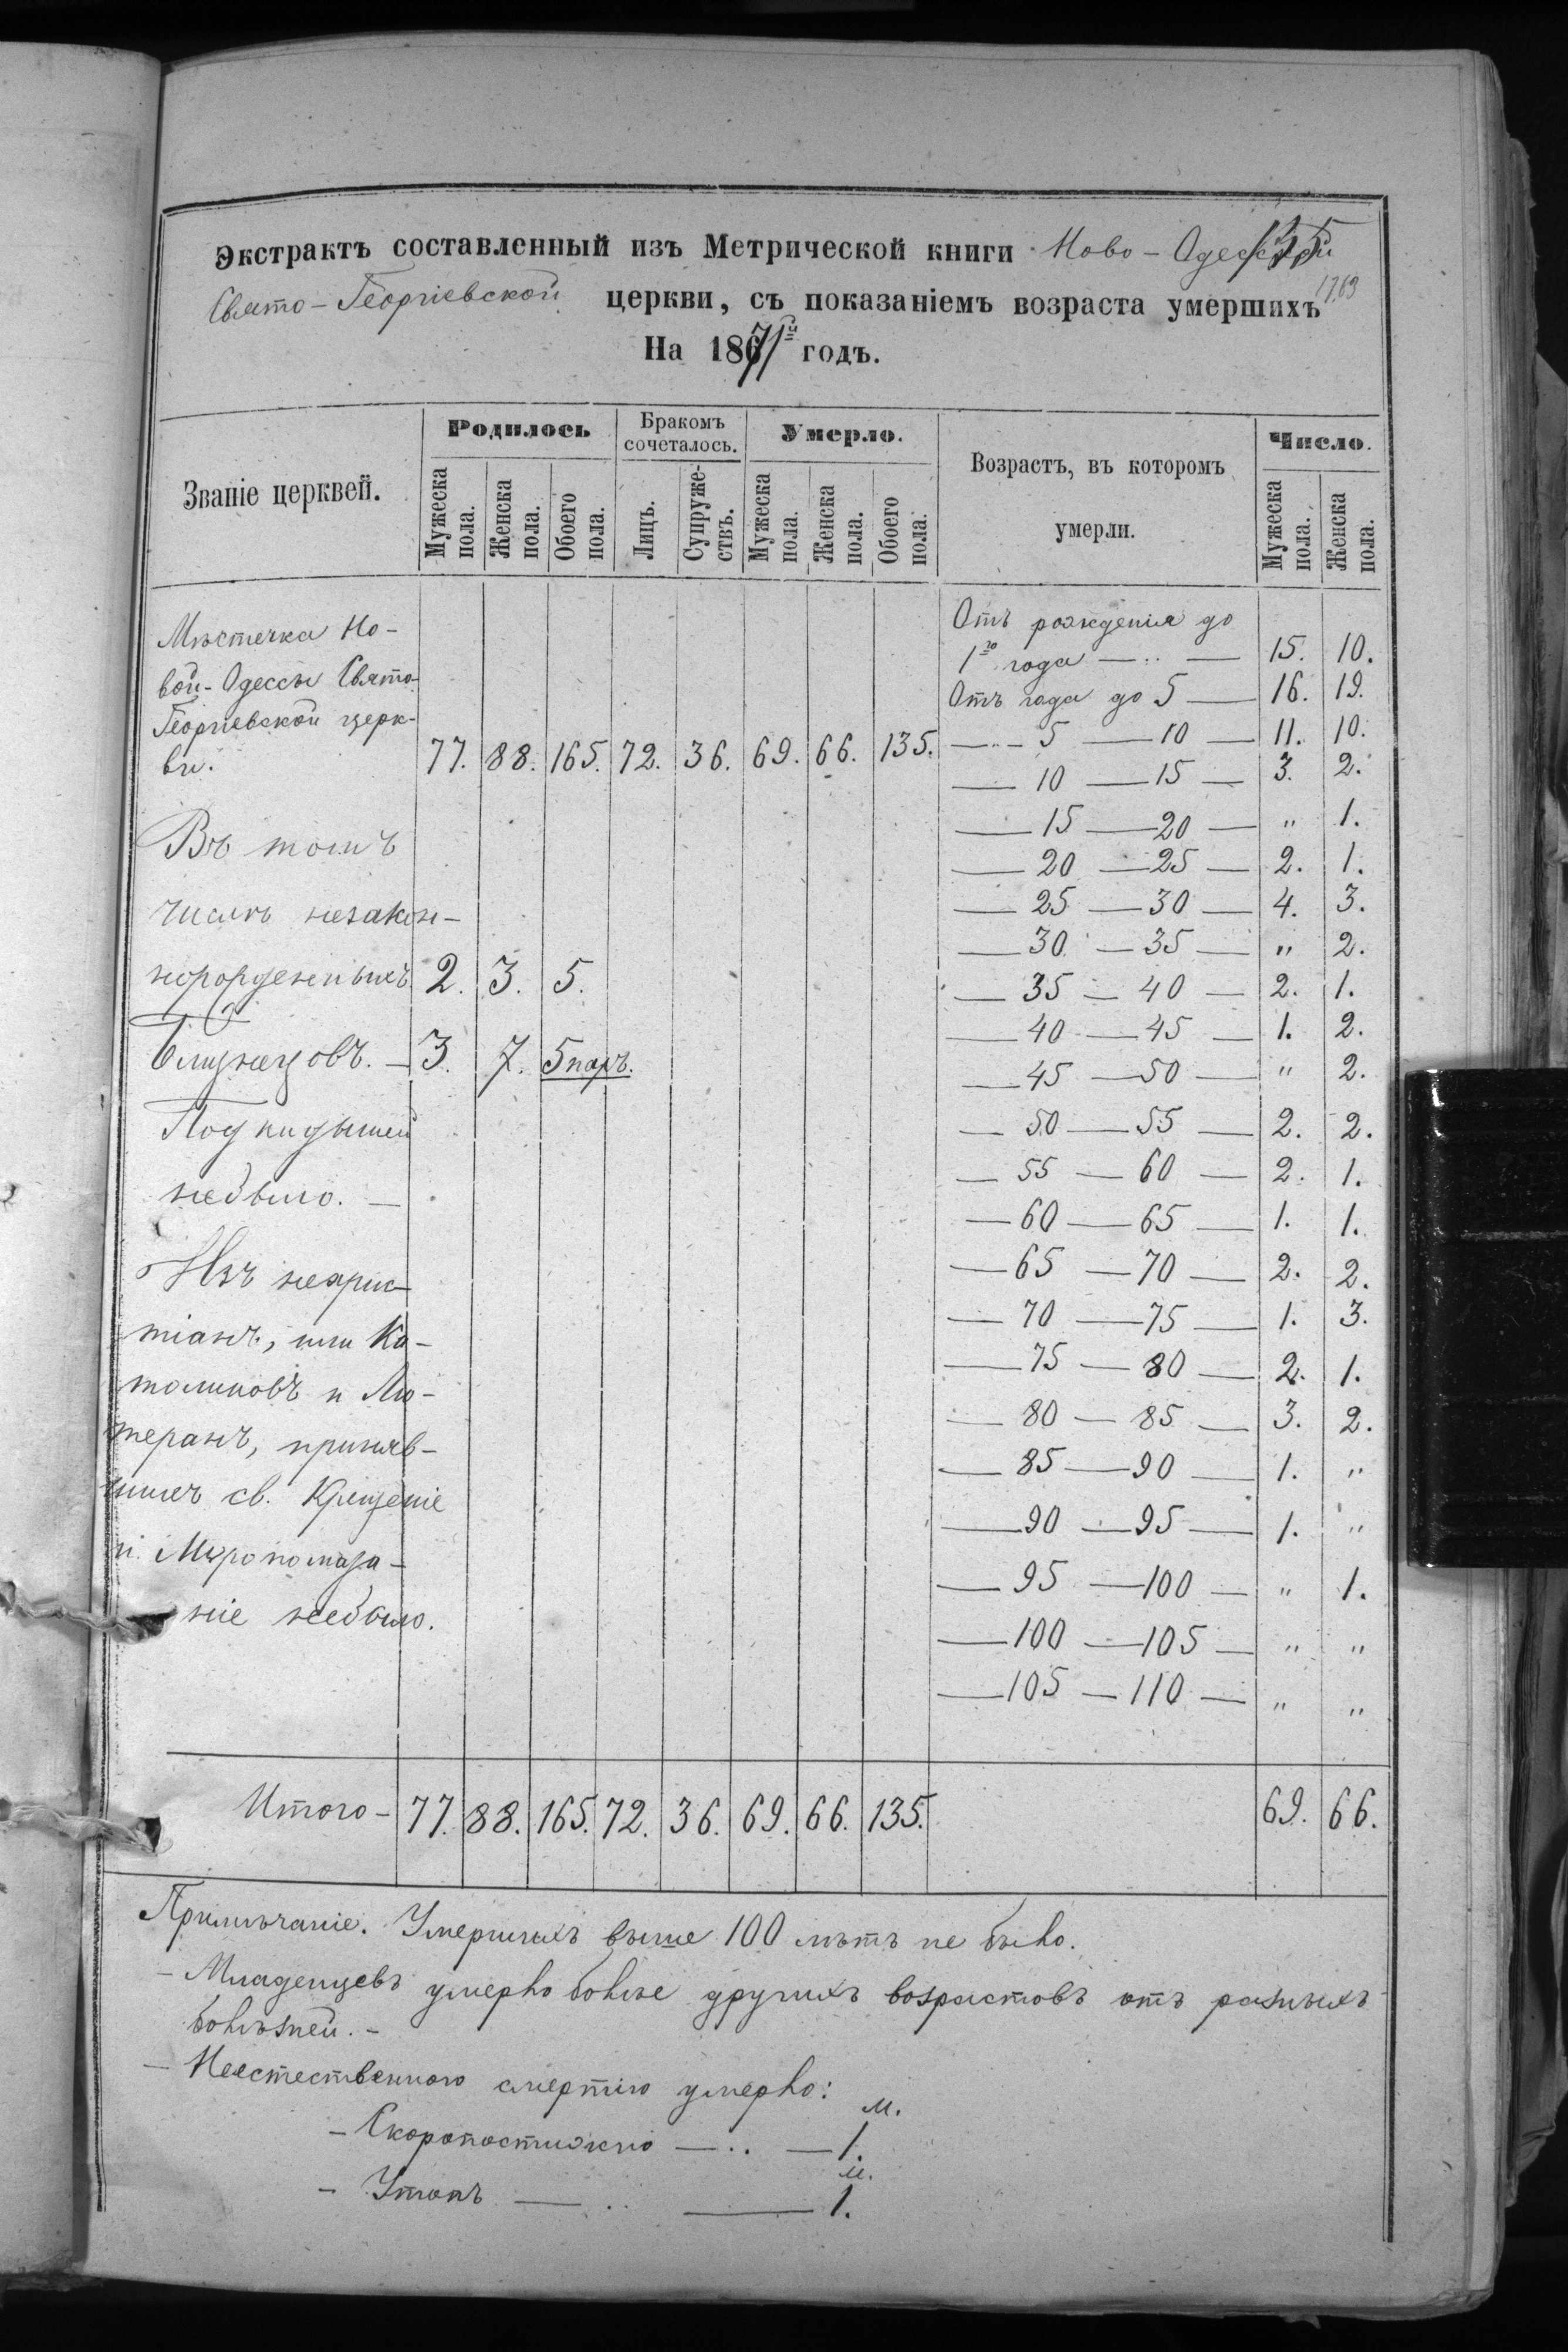 Экстрактъ составленный изъ Метрической книги Ново-Одесской
135
Свято-Георгіевской церкви, съ показаніемъ возраста умершихъ
На 1871й годъ.
Званіе церквей.
Родилось
Бракомъ сочеталось.
Умерло.
Возрастъ, въ которомъ умерли.
Число.
Мужеска пола.
Женска пола.
Обоего пола.
Лицъ.
Супружествъ.
Мужеска пола.
Женска пола.
Обоего пола.
Мужеска пола.
Женска пола.
Мѣстечка Но-
вой-Одессы Свято-
Георгіевской церк-
ви. 77. 88. 165. 72. 36. 69. 66. 135.
Въ томъ
числѣ незакон-
норожденныхъ 2. 3. 5.
Близнецовъ. — 3. 7. 5 паръ.
Подкидышей
небыло. —
Изъ нехрис-
тіанъ, или Ка-
толиковъ и Лю-
теранъ, приняв-
шихъ св. Крещеніе
и Мѵропомаза-
ніе небыло.
Отъ рожденія до
1го года — 15. 10.
Отъ года до 5 — 16. 19.
— 5 — 10 — 11. 10.
— 10 — 15 — 3. 2.
— 15 — 20 — " 1.
— 20 — 25 — 2. 1.
— 25 — 30 — 4. 3.
— 30 — 35 — " 2.
— 35 — 40 — 2. 1.
— 40 — 45 — 1. 2.
— 45 — 50 — " 2.
— 50 — 55 — 2. 2.
— 55 — 60 — 2. 1.
— 60 — 65 — 1. 1.
— 65 — 70 — 2. 2.
— 70 — 75 — 1. 3.
— 75 — 80 — 2. 1.
— 80 — 85 — 3. 2.
— 85 — 90 — 1. "
— 90 — 95 — 1. "
— 95 — 100 — " 1.
— 100 — 105 — " "
— 105 — 110 — " "
Итого — 77. 88. 165. 72. 36. 69. 66. 135. 69. 66.
Примѣчаніе. Умершихъ выше 100 лѣтъ не было.
— Младенцевъ умерло болѣе другихъ возрастовъ отъ разныхъ
болѣзней. —
— Неестественного смертію умерло:
м.
— Скоропостижно — 1.
м.
— Утопъ — 1.